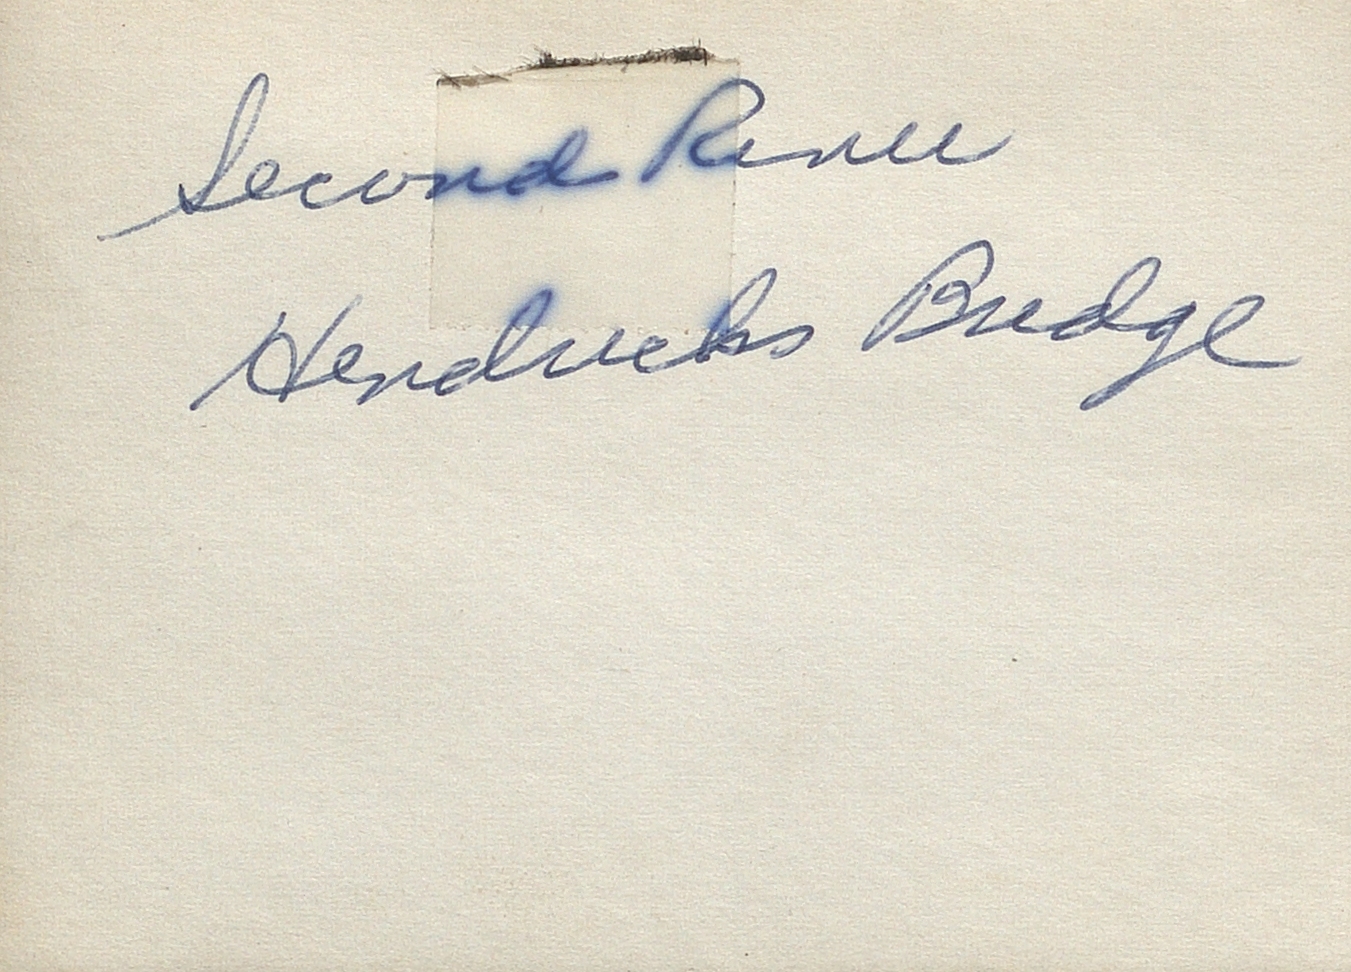 Second
Hendricks Bridge